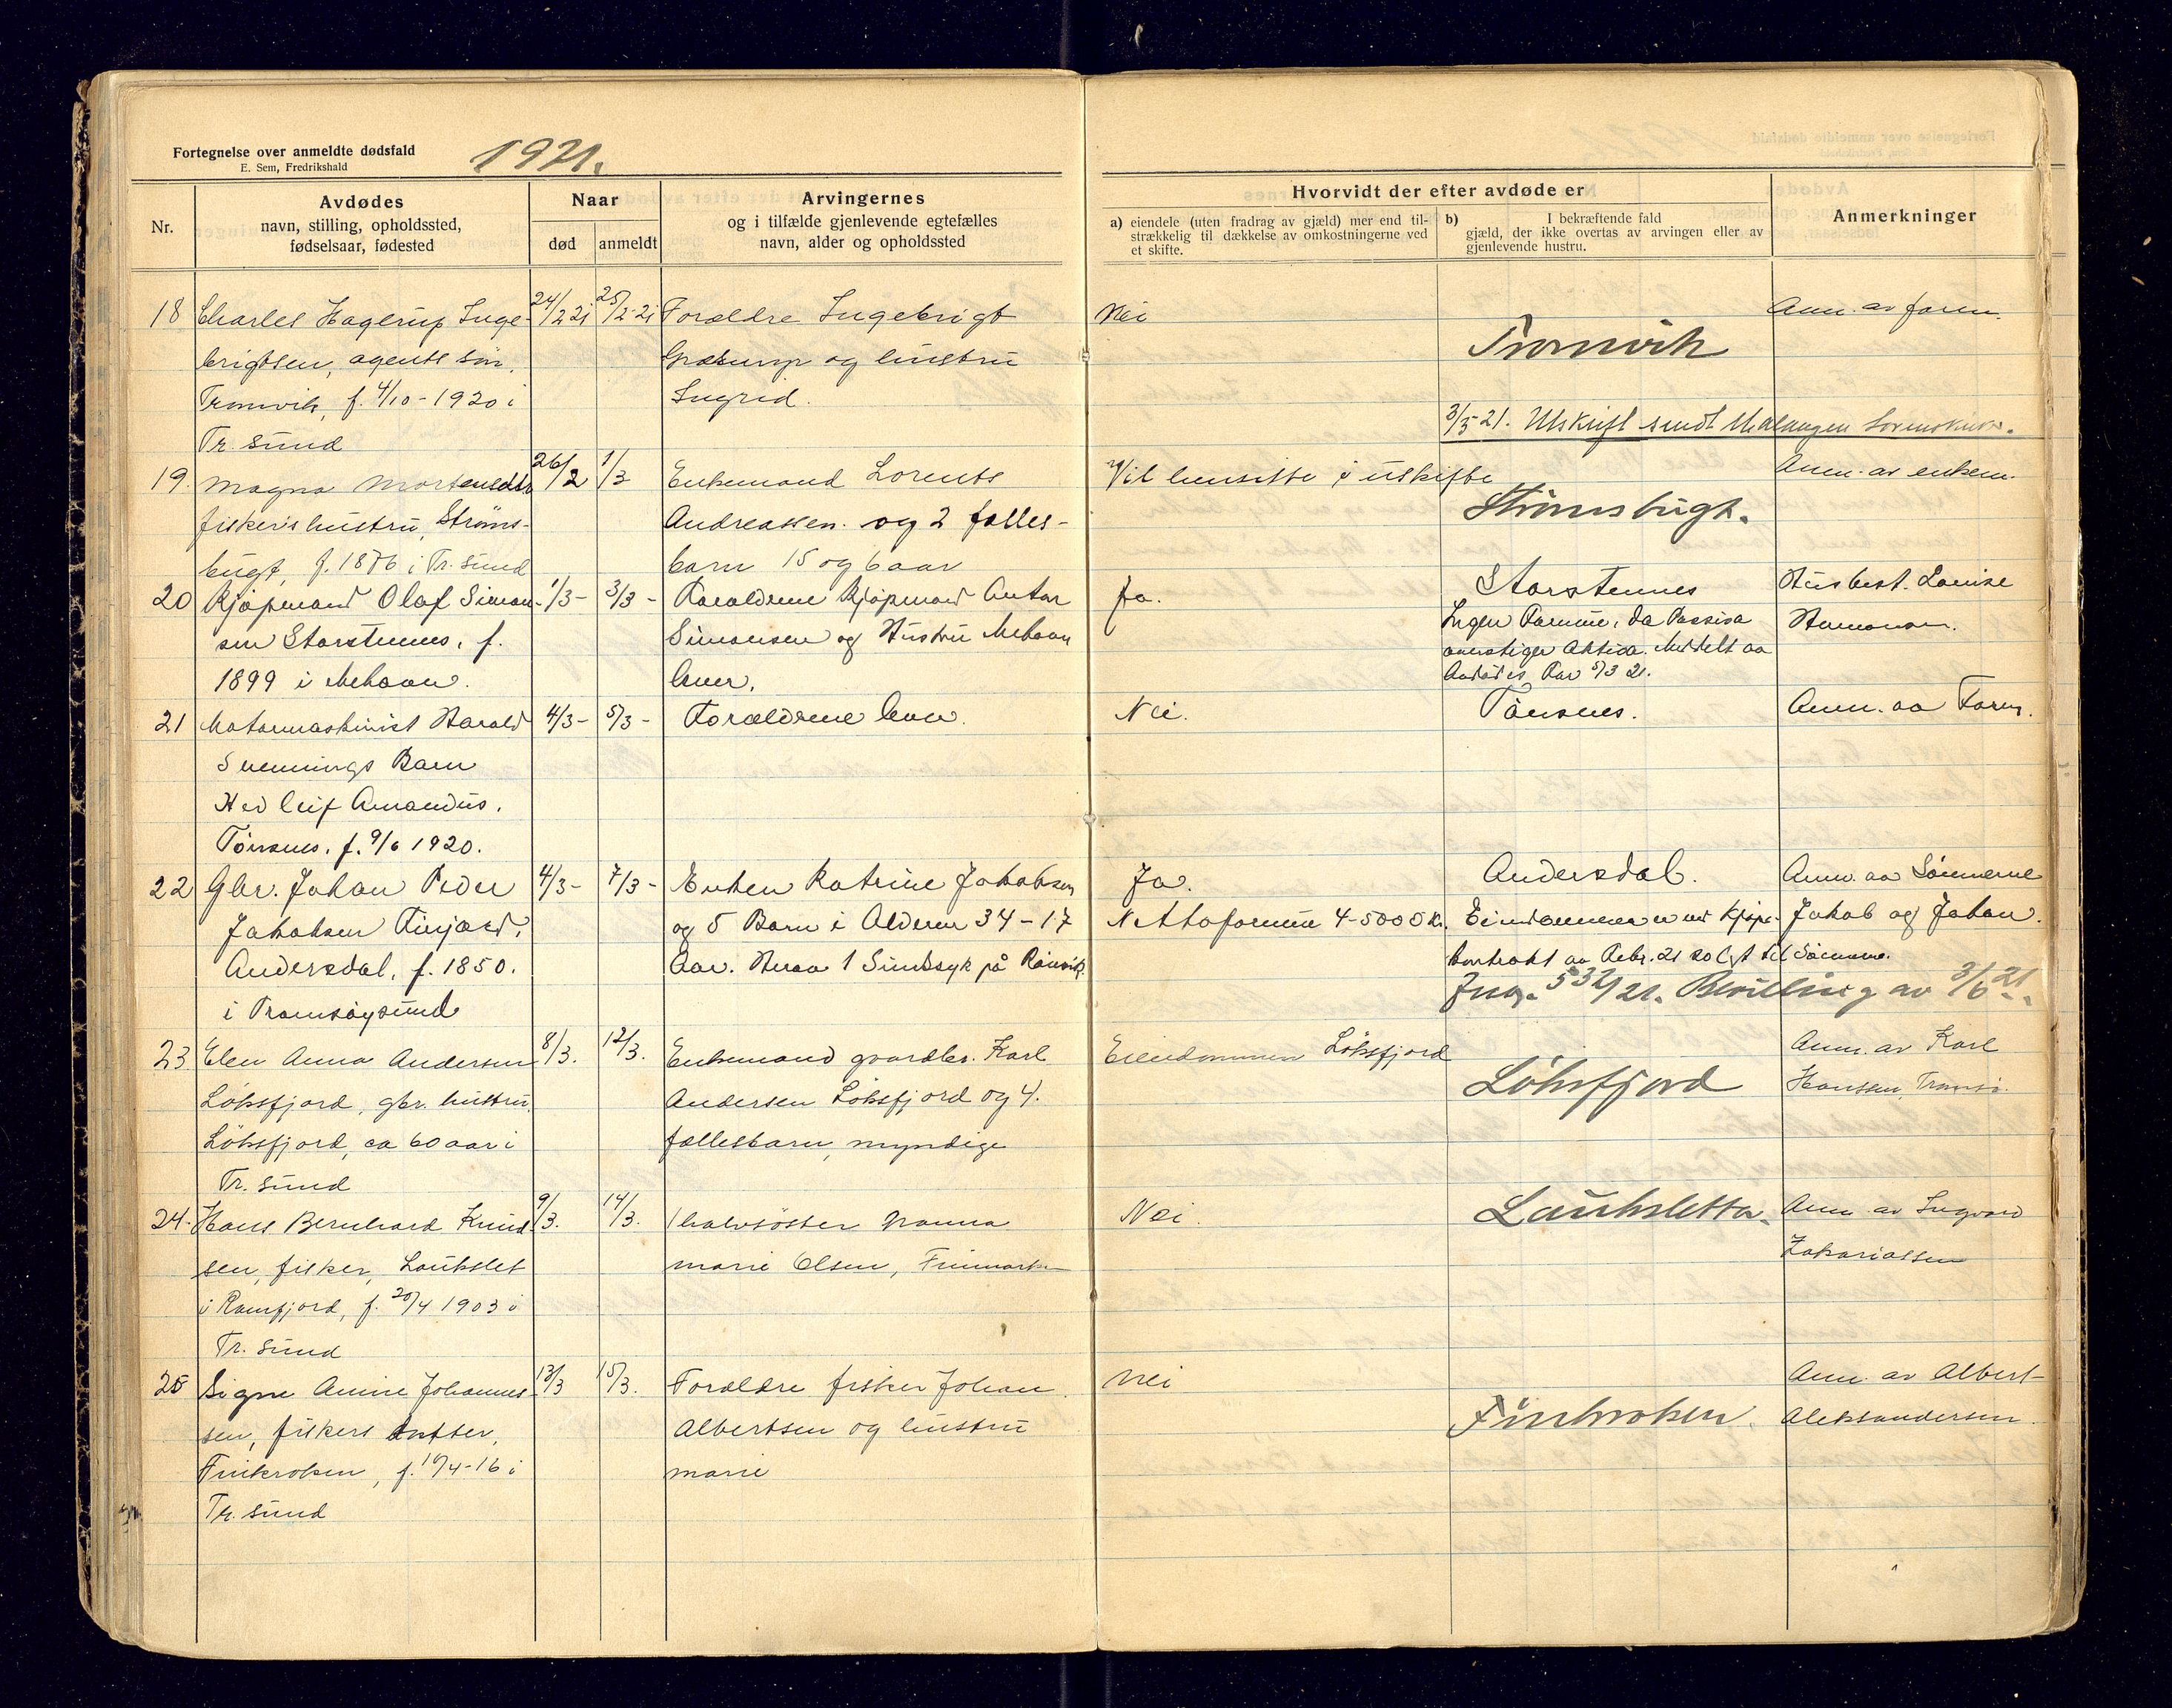 Fortegnelse over anmeldte dødsfald
E. Sem, Fredrikshald
1921.
Nr.
Avdødes
navn, stilling, opholdssted,
fødselsaar, fødested
Naar
død
anmeldt
Arvingernes
og i tilfælde gjenlevende egtefælles
navn, alder og opholdssted
Hvorvidt der efter avdøde er
a) eiendele (uten fradrag av gjæld) mer end til-
strækkelig til dækkelse av omkostningerne ved
et skifte.
b) I bekræftende fald
gjæld, der ikke overtas av arvingen eller av
gjenlevende hustru.
Anmerkninger
18 Charles Hagerup Inge-
brigtsen, agents søn,
Tromvik, f. 4/10-1920 i
Tr. sund
24/2 21 25/2-21
Forældre Ingebrigt
og hustru
Ingrid.
Nei
Tromvik
Anm. av faren.
3/3-21. Utskrift sendt Malangen Sorenskriv.
19. Magna Mortensdtr
fiskers hustru, Strøms-
bugt, f. 1876 i Tr. sund
26/2 1/3
Enkemand Lorents
Andreassen og 2 fælles-
barn 15 og 6 aar
Vil hensitte i uskifte
Strømsbugt.
Anm. av enkem.
20 Kjøpmand Olaf Simon-
sen Storstennes, f.
1899 i Mehavn.
1/3- 3/3-
Foræeldrene Kjøpmand Anton
Simonsen og Hustru Mehavn
lever.
Ja.
Storstennes
Ingen Formue, da Passiva
overstiger Aktiva. Meddelt av
Avdødes Far 5/3 21.
Husbest. Louise
21 Motormaskinist Harald
Svennings Barn
Hedleif Amandus.
Tønsnes. f. 9/6 1920.
4/3- 5/3-
Forældrene lever.
Nei.
Tønsnes.
Anm. av Faren.
22 Gbr. Johan Peder
Jakobsen Finjord,
Andersdal. f. 1850.
i Tromsøysund
4/3- 7/3-
Enken Katrine Jakobsen
og 5 Barn i Alderen 34-17
Aar. Herav 1 Sindsyk på Rønvik.
Ja.
Nettoformue 4-5000 Kr.
Andersdal.
Eiendommen er ved Kjøpe-
kontrakt av Febr. 21 solgt til Sønnene.
Jnr. 532/21. Bevilling av 3/6 21.
Anm. av Sønnerne
Jakob og Johan.
23 Elen Anna Andersen
Løksfjord, gbr. hustru,
Løksfjord, ca 60 aar i
Tr. sund
8/3. 12/3.
Enkemand gaardbr. Karl
Andersen Løksfjord og 4.
fællesbarn, myndige
Eiendommen Løksfjord
Løksfjord
Anm. av Karl
Hanssen, Tromsø.
24. Hans Bernhard Knud-
sen, fisker, Laukslet
i Ramfjord, f. 20/4 1903 i
Tr. sund
9/3. 14/3.
1 halvsöster Nanna
Marie Olsen, Finmarken
Nei.
Lauksletta.
Anm. av Ingvard
Zakariassen
25 Signe Amine Johannes-
sen, fiskers datter,
Finkroken, f. 10/4-16 i
Tr. sund
13/3 15/3.
Forældre fisker Johan
Albertsen og hustru
Marie
Nei
Finkroken.
Anm. av Albert
Aleksandersen